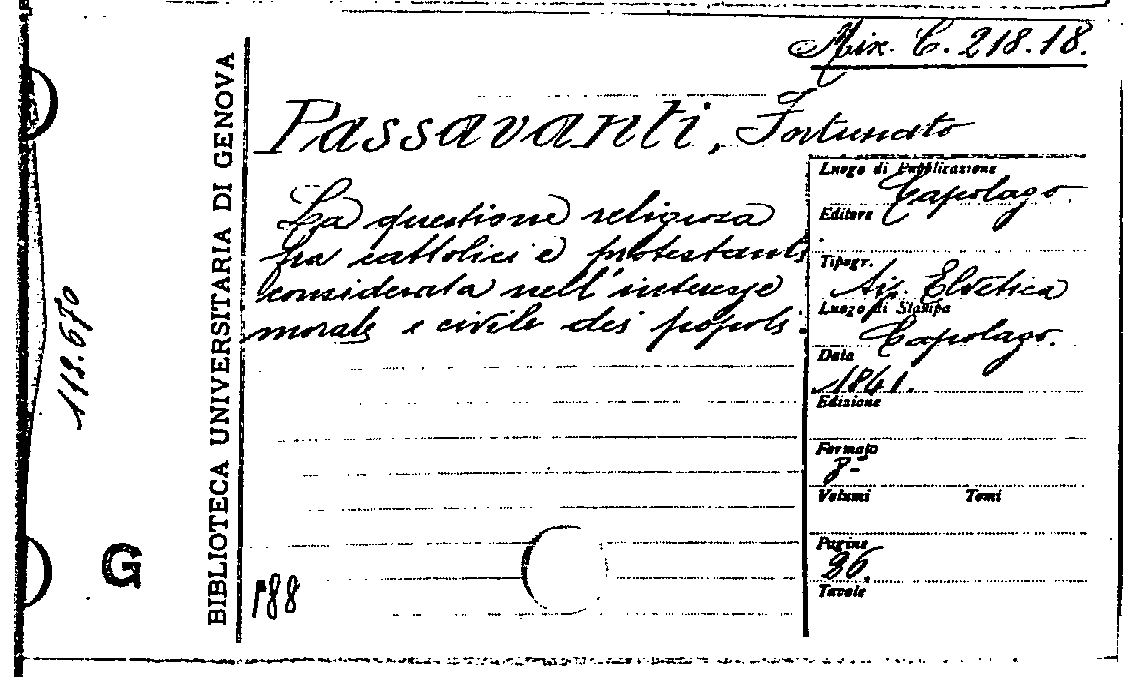 Mix. C. 218.18.
Passavanti, Fortunato
La questione religiosa
fra cattolici e protestanti
considerata nell'interesse
morale e civile dei popoli.
Luogo di Pubblicazione
Capolago.
Editore
Tipogr.
Elvetica
Luogo di Stampa
Capolago.
Data
1861.
Edizione
Formato
8-
Volumi Tomi
Pagine
36.
Tavole
BIBLIOTECA UNIVERSITARIA DI GENOVA
118.670
G
188